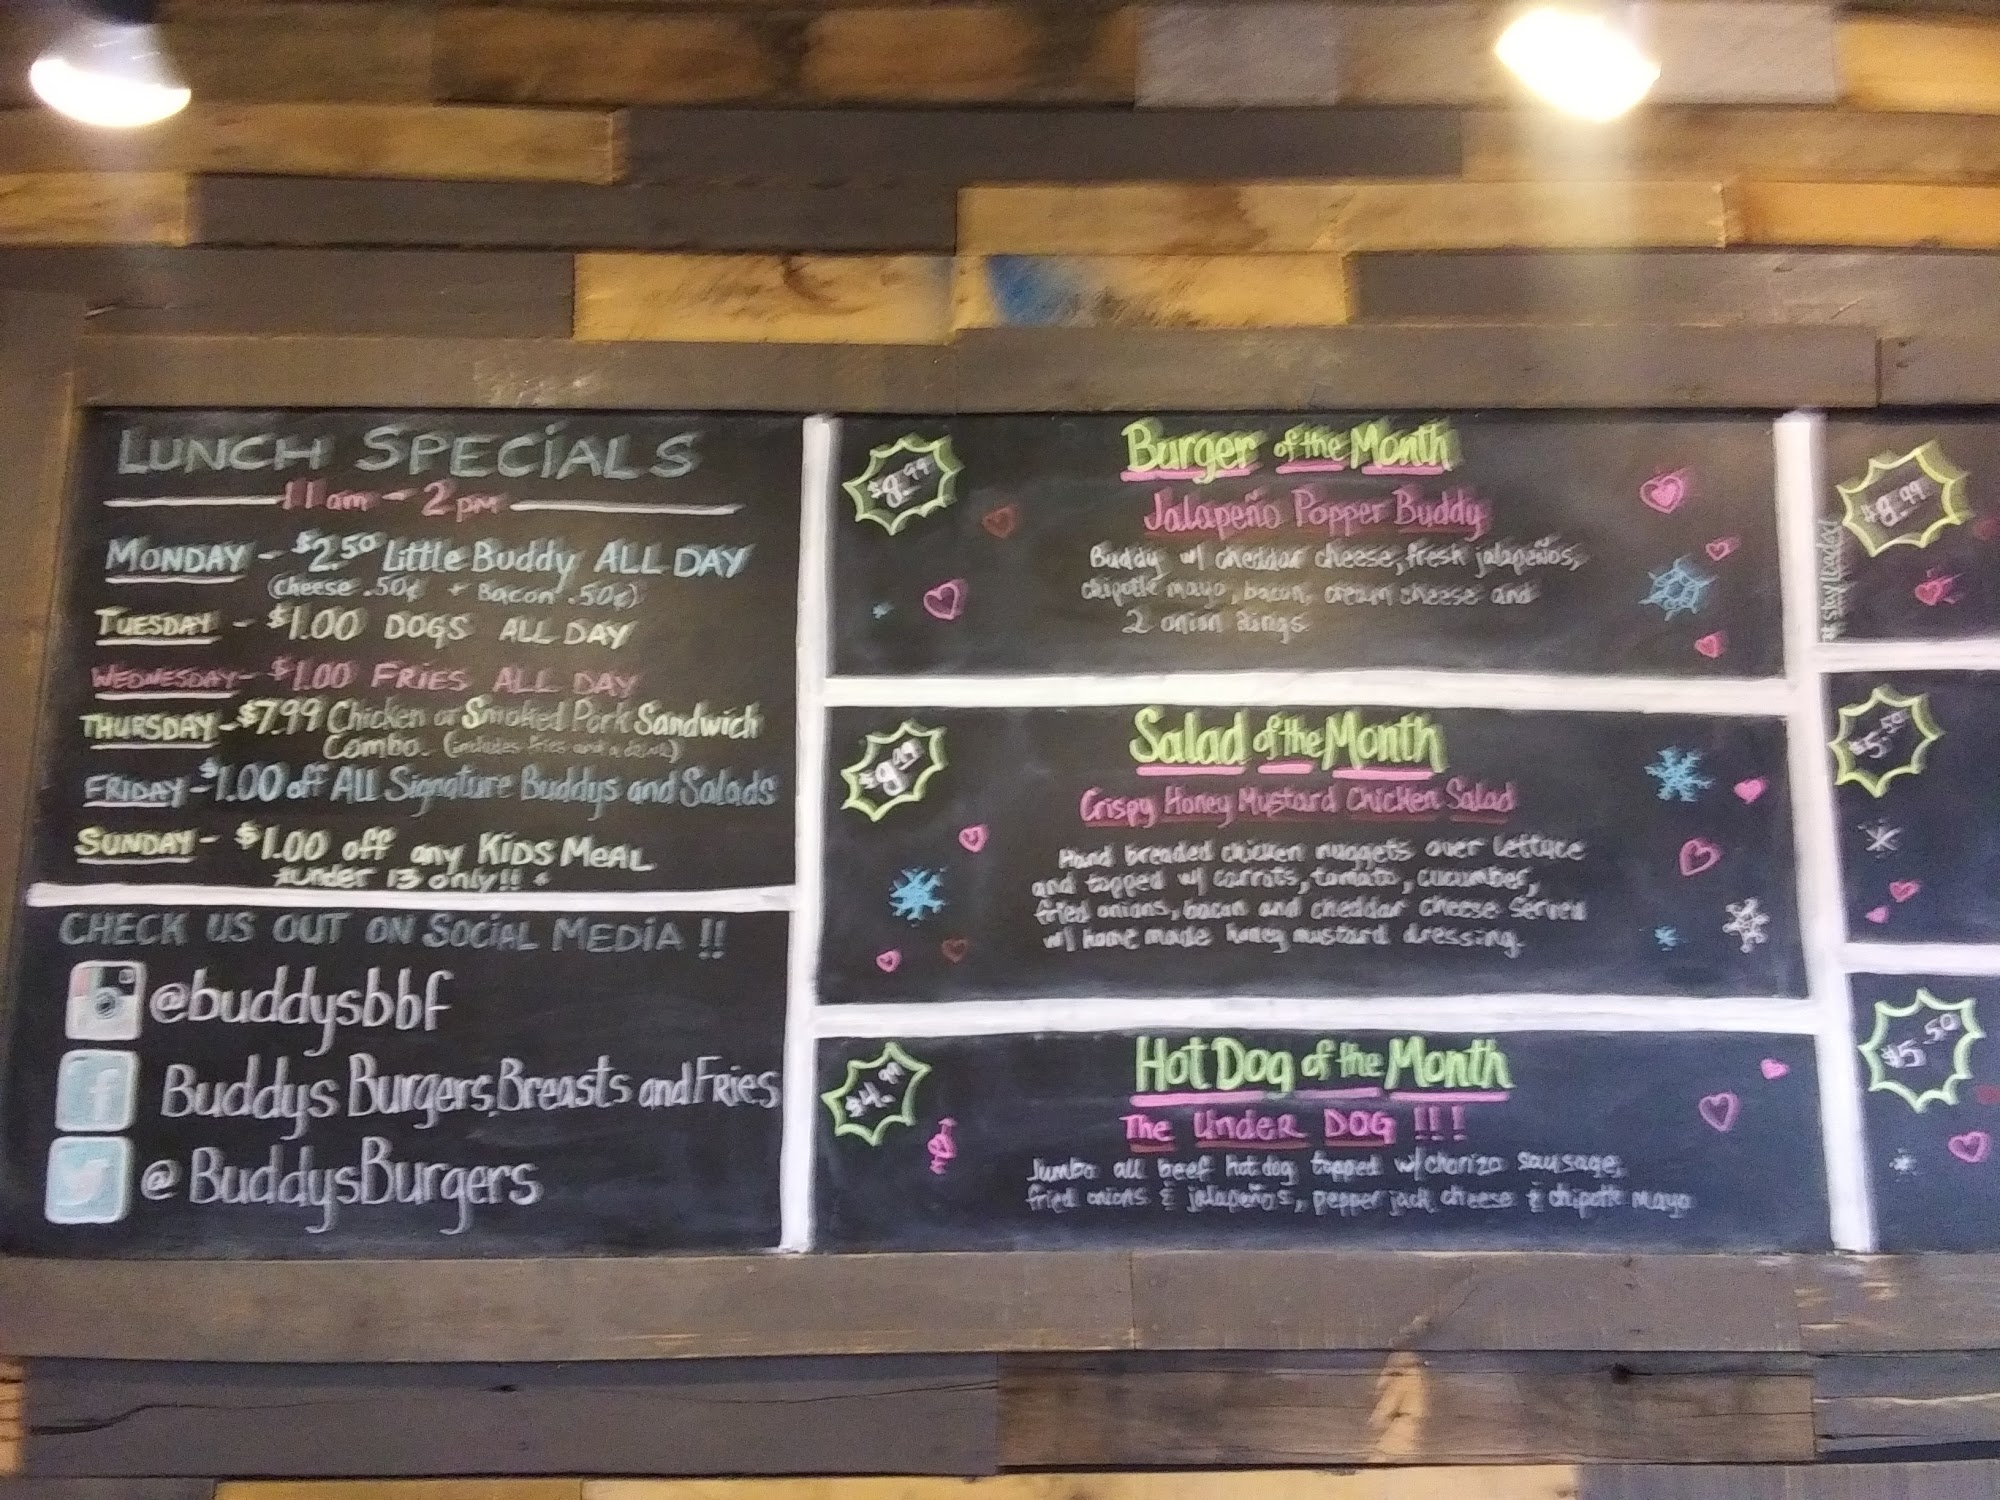 LUNCH SPECIALS
11am - 2pm
MONDAY - $2.50 Little Buddy ALL DAY
(Cheese .50¢ + Bacon .50¢)
TUESDAY - $1.00 DOGS ALL DAY
WEDNESDAY - $1.00 FRIES ALL DAY
THURSDAY - $7.99 Chicken or Smoked Pork Sandwich
Combo. (includes fries and a drink)
FRIDAY - $1.00 off ALL Signature Buddys and Salads
SUNDAY - $1.00 off any KIDS MEAL
*under 13 only!! *
CHECK US OUT ON SOCIAL MEDIA !!
@buddysbbf
f Buddys Burgers, Breasts and Fries
@BuddysBurgers
$8.99
Burger of the Month
Jalapeño Popper Buddy
Buddy w/ cheddar cheese, fresh jalapeños,
chipotle mayo, bacon, cream cheese and
2 onion Rings
Salad of the Month
Crispy Honey Mustard Chicken Salad
Hand breaded chicken nuggets over lettuce
and topped w/ carrots, tomato, cucumber,
fried onions, bacon and cheddar cheese Served
w/ home made honey mustard dressing.
$4.99
Hot Dog of the Month
The UnDER DOG !!!
Jumbo all beef hot dog topped w/ chorizo sausage,
fried onions & jalapeños, pepper jack cheese & chipotle mayo
# stay loaded
$8.99
$5.50
$5.50